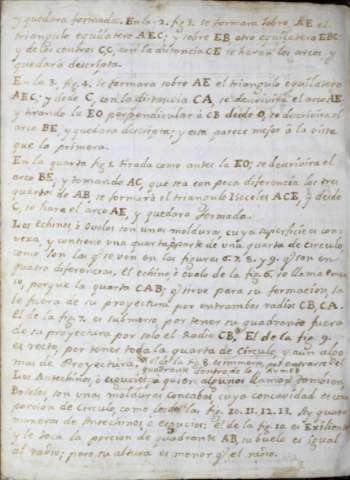 y quedara formada. En la 2. fig. 3. se formara sobre AE el
triangulo equilatero AEC; y sobre EB otro equilatero EBC
y de los centros CC, con la distancia CE se haran los arcos y
quedara descripta.
En la 3. fig. 4. se formara sobre AE el triangulo equilatero
AEC; y desde C, con la distancia CA, se descrivira el arco AE.
y tirando la EO perpendicular à CB desde O, se descrivira el
arco BE, y quedara descripta; y esta parece mejor à la vista
que la primera.
En la quarta fig. 5. tirada como antes la EO; se descrivira el
arco BE; y tomando AC, que sea con poca diferencia los tres
quartos de AB, se formarà el triangulo Isoceles ACE, y desde
C, se hara el arco AE, y quedara formada.
Los echinos ò ovolos son unas molduras, cuya superficie es con-
vexa, y contiene una quarta parte de una quarta de circulo
como son las q.e se ven en las figuras 6. 7. 8. y 9. q.e son en
quatro diferencias, el echino ò ovalo de la fig. 6. se llama
so, porque la quarta CAB; q.e sirve para su formacion, sa-
le fuera de su proyectura por entrambos radios CB, CA.
El de la fig. 7. es por tener su quadrante fuera
de su proyectura por solo el Radio CB. El de la fig. 9.
es recto, por tener toda la quarta de circulo, y aun algo
mas de Proyectura. el de la fig. 8. por entrar el
quadrante dentro de la
Los Antechinos, ò esgucios, a quien algunos llaman
Boteles son unas molduras concabas cuya concavidad es una
porcion de Circulo, como los de las fig. 10. 11. 12. 13. Ay quatro
maneras de Antechinos ò esgucios; el de la fig. 10. es
y le toca la porcion de quadrante AB, su buelo es igual
al radio; pero su altura es menor q.e el radio.